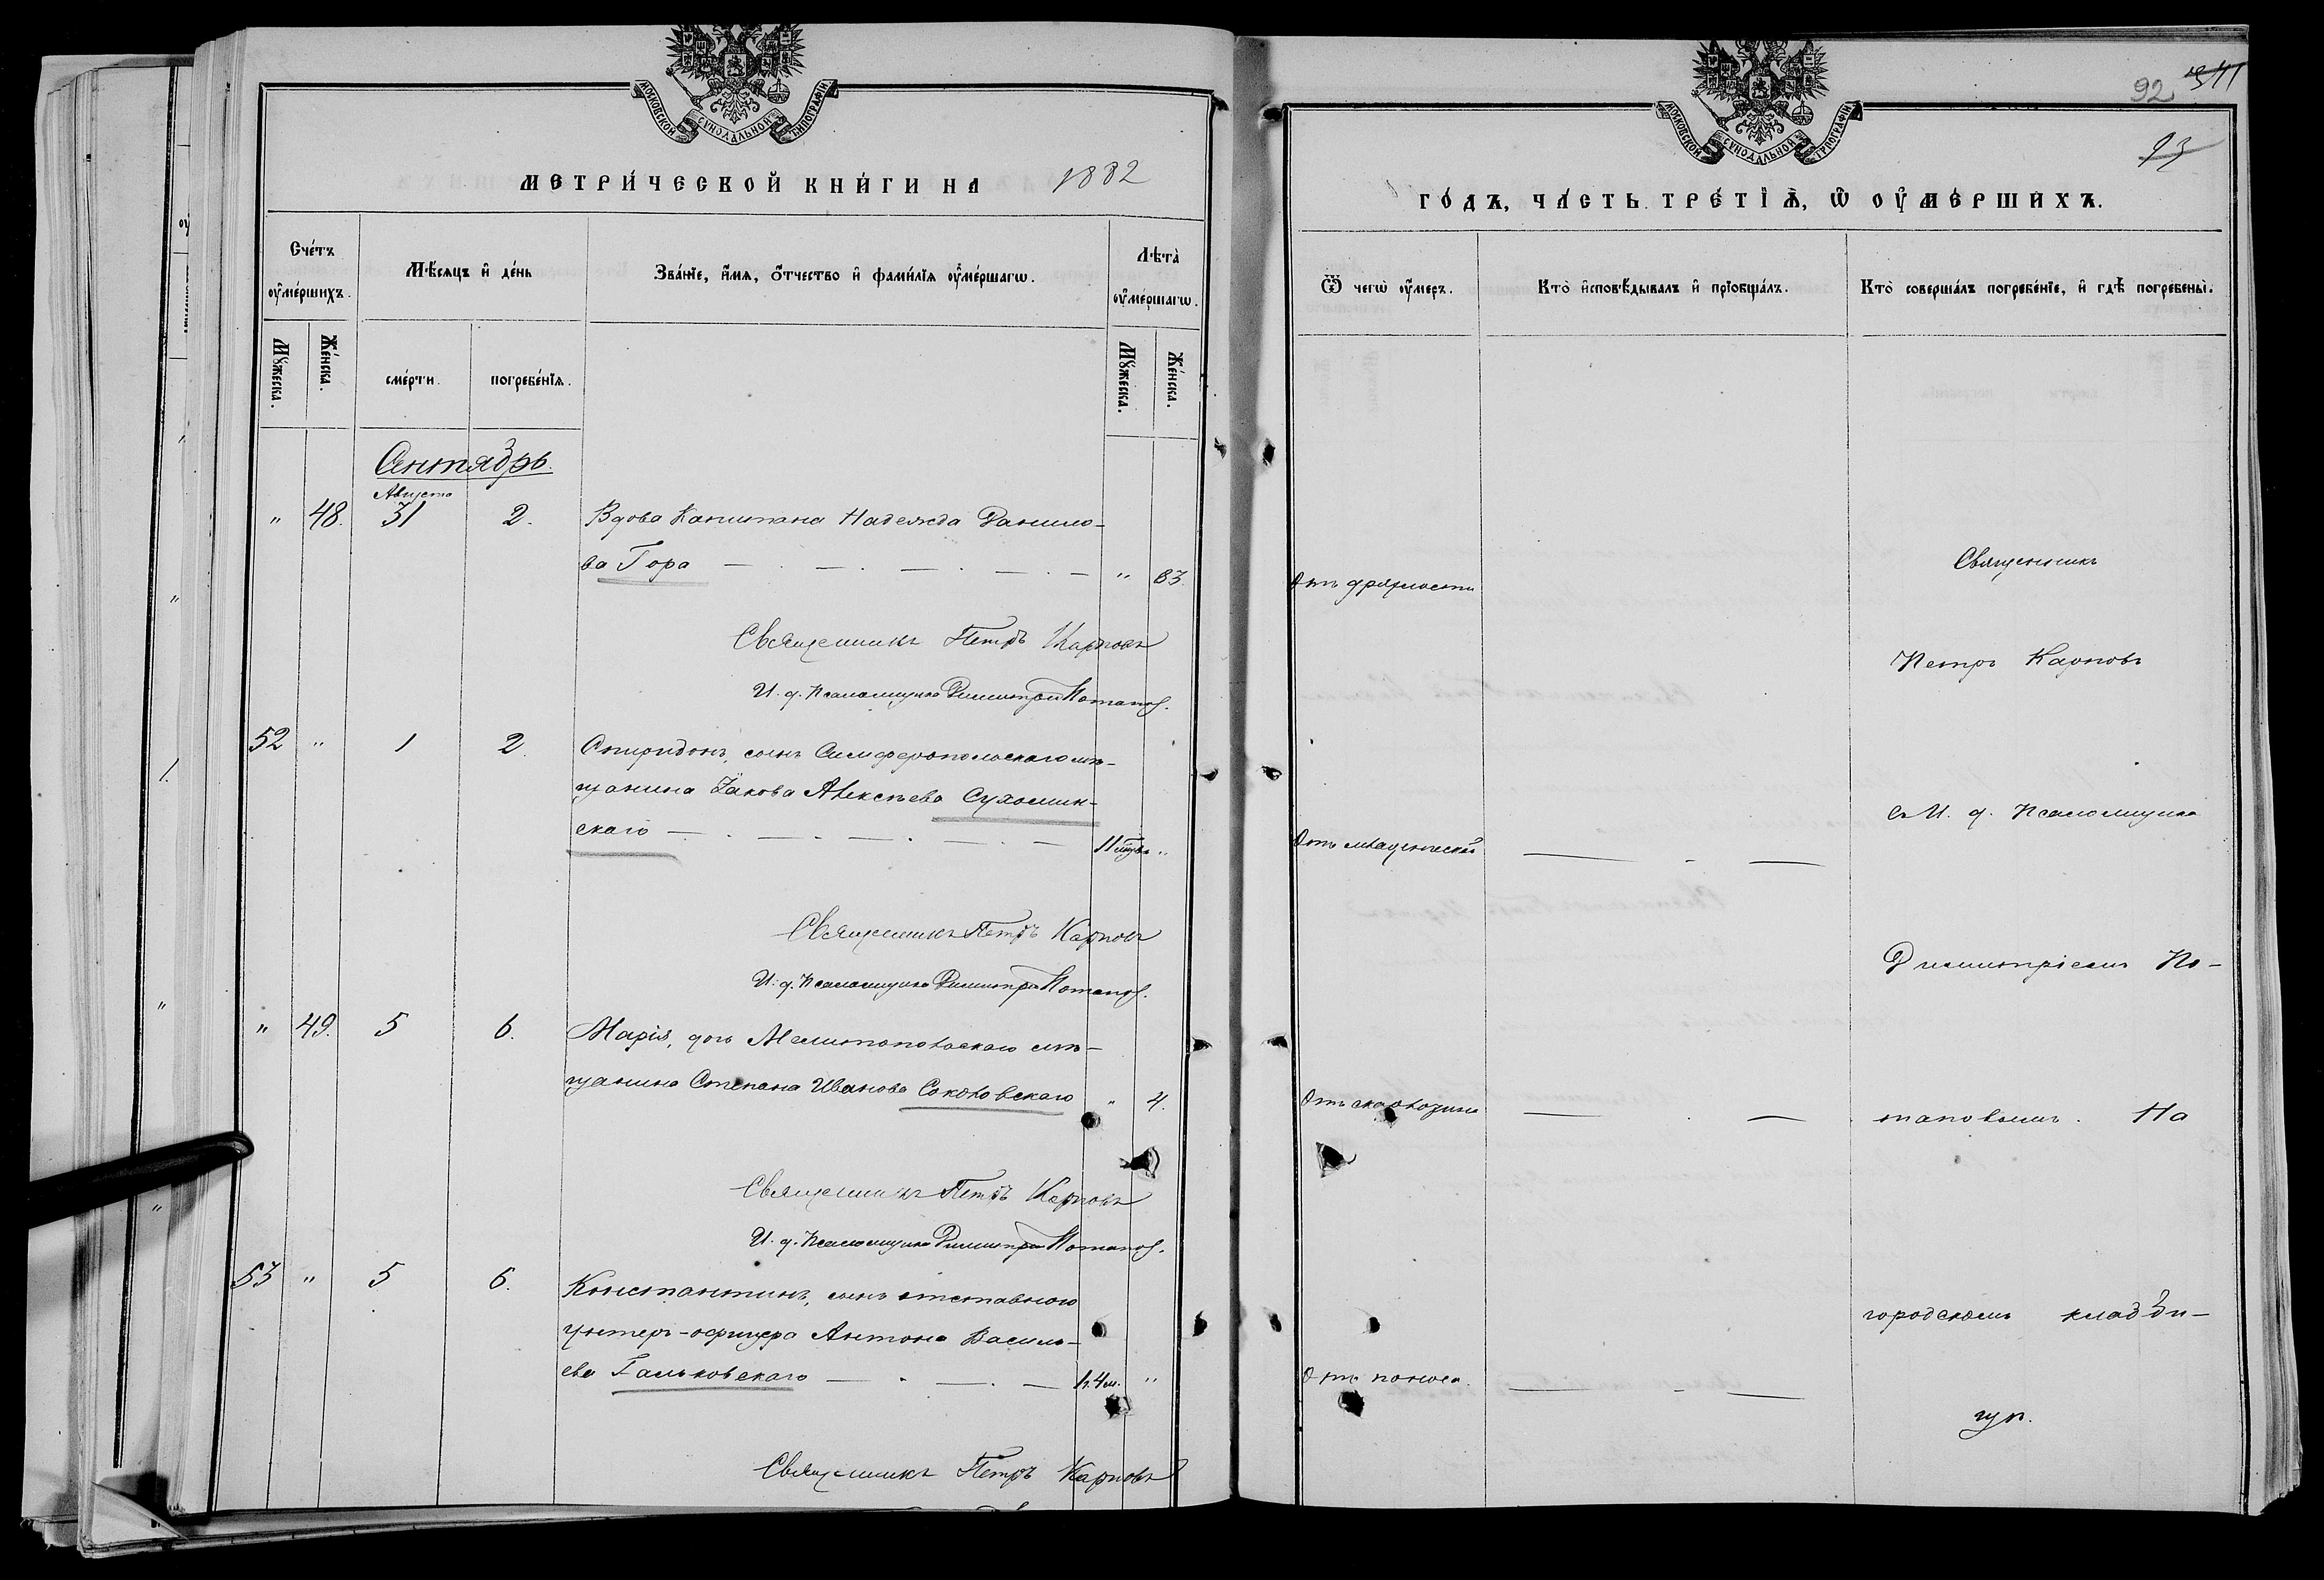 МОСКОВСКОЙ СѴНОДАЛЬНОЙ ТИПОГРАФІИ
МЕТРИ́ЧЕСКОЙ КНИ́ГИ НА 1882
Сче́тъ ᲂу҆ме́ршихъ.
Мѣ́сяцъ и҆ де́нь
Зва́нїе, и҆́мя, ѻ҆́тчество и҆ фами́лїя ᲂу҆ме́ршагѡ.
Лѣ́та ᲂу҆ме́ршагѡ.
Мꙋ́жеска.
Же́нска.
сме́рти.
погребе́нїя.
Мꙋ́жеска.
Же́нска.
Сентябрь.
Августа
" 48. 31 2. Вдова Капитана Надежда Данило-
ва Гора " 83.
Священникъ Петръ Карповъ
И. д. Псаломщика Димитрій Потапов.
52 " 1 2. Спиридонъ, сынъ Симферопольскаго мѣ-
щанина Іакова Алексѣева Сухомлин-
скаго 11 "
Священникъ Петръ Карповъ
И. д. Псаломщика Димитрій Потапов.
" 49. 5 6. Марія, дочь Мелитопольскаго мѣ-
щанина Степана Иванова Соколовскаго " 4.
Священникъ Петръ Карповъ
И. д. Псаломщика Димитрій Потапов.
53 " 5 6. Константинъ, сынъ отставного
унтеръ-офицера Антона Василь-
ева Гальковскаго 1 г. 4 м. "
Священникъ Петръ Карповъ
92 341
93
МОСКОВСКОЙ СѴНОДАЛЬНОЙ ТИПОГРАФІИ
ГО́ДЪ, ЧА́СТЬ ТРЕ́ТЇѦ, Ѽ ОУ҆МЕ́РШИХЪ.
Ѿ чегѡ̀ ᲂу҆́меръ.
Кто̀ и҆сповѣ́дывалъ и҆ прїобща́лъ.
Кто̀ соверша́лъ погребе́нїе, и҆ гдѣ̀ погребены̀.
Отъ дряхлости
Священникъ
Петръ Карповъ
Отъ младенческой
съ И. д. Псаломщика
Димитріемъ По-
Отъ скарлатины
таповымъ. На
городскомъ кладби-
Отъ поноса.
щѣ.